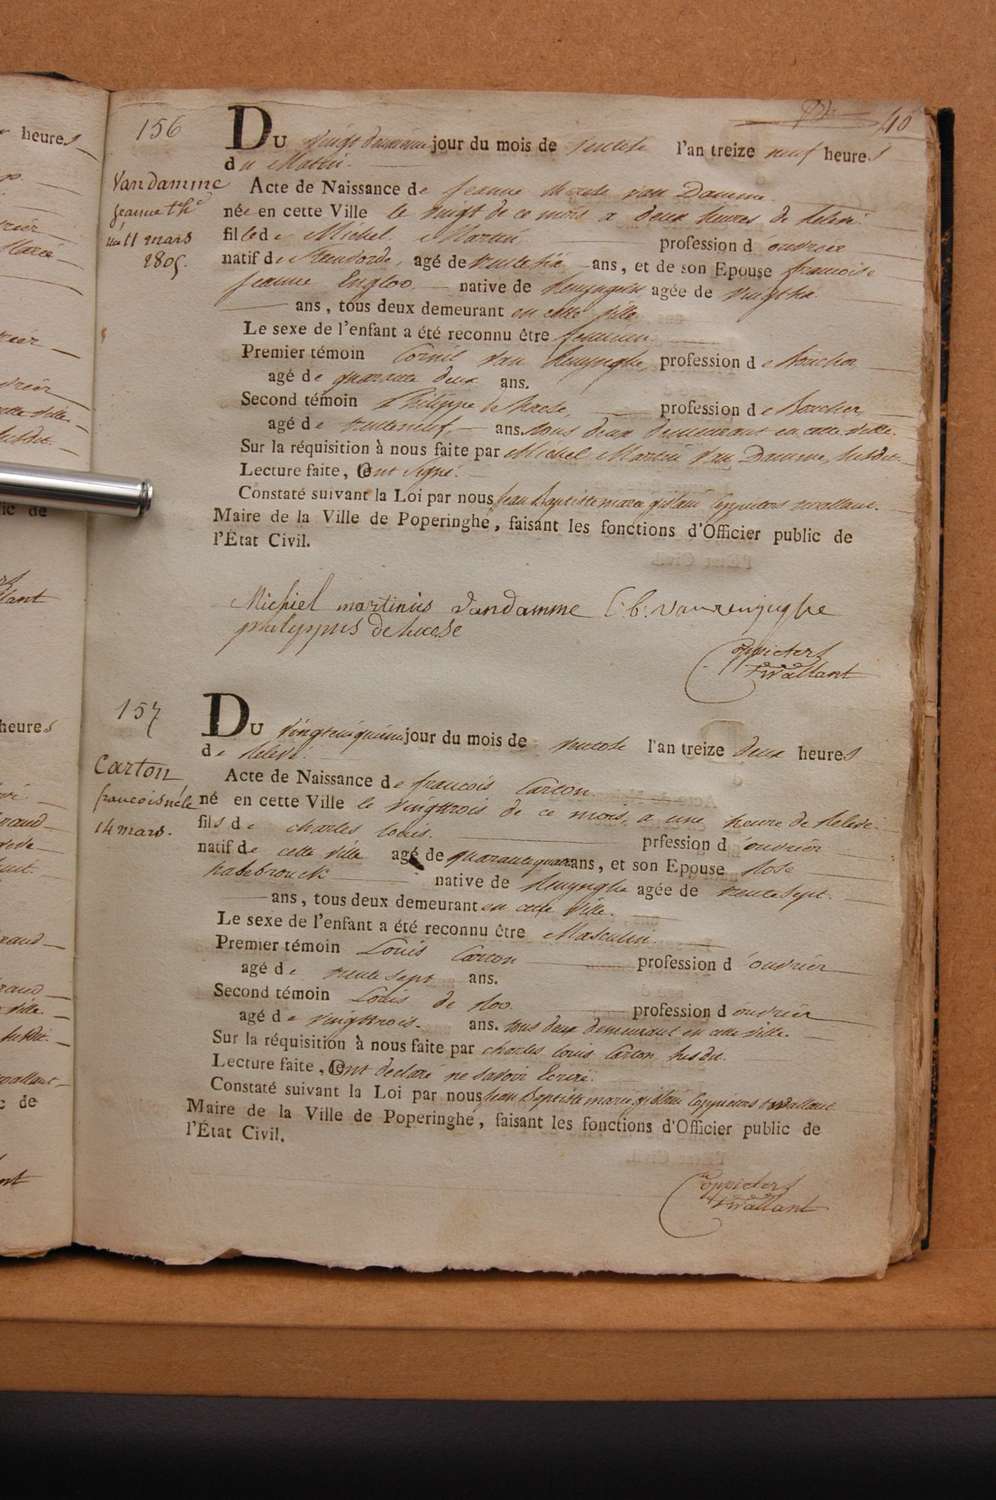 40
156
Vandamme
jeanne th.e
né 11 mars
1805.
DU vingt deuxième jour du mois de ventose l'an treize neuf heures
du Matin.
Acte de Naissance de jeanne van Damme
née en cette Ville le vingt de ce mois a deux heures de relevé
fille de Michel Martin profession d'ouvrier
natif de agé de ans, et de son Epouse francoise
jeanne native de Renynghe agée de
ans, tous deux demeurant en cette ville
Le sexe de l'enfant a été reconnu être feminin
Premier témoin Cornil van Renynghe profession de Boucher
agé de quarante deux ans.
Second témoin Philippe de profession de Boucher
agé de trenteneuf ans. tous deux demeurant en cette ville.
Sur la réquisition à nous faite par Michel Martin Van Damme, susdit
Lecture faite, Ont signé.
Constaté suivant la Loi par nous jean Baptiste marie Coppieters twallant
Maire de la Ville de Poperinghe, faisant les fonctions d'Officier public de
l'État Civil.
Michiel martinus Vandamme C:b: Vanrenynghe
Coppieters
t'wallant
157
Carton
francois né le
14 mars.
DU vingtcinquieme jour du mois de ventose l'an treize deux heures
de relevé.
Acte de Naissance de francois Carton
né en cette Ville le vingttrois de ce mois, a une heure de relevé
fils de charles louis. prfession d'ouvrier
natif de cette ville agé de quarantequatre ans, et son Epouse Rose
habebrouck native de Renynghe agée de trentesept
ans, tous deux demeurant en cette ville.
Le sexe de l'enfant a été reconnu être Masculin
Premier témoin Louis Carton profession d'ouvrier
agé de trentesept ans.
Second témoin Louis de Roo profession d'ouvrier
agé de vingttrois. ans. tous deux demeurant en cette ville.
Sur la réquisition à nous faite par charles louis Carton susdit.
Lecture faite, Ont declaré ne savoir Ecrire.
Constaté suivant la Loi par nous jean Baptiste marie Coppieters twallant
Maire de la Ville de Poperinghe, faisant les fonctions d'Officier public de
l'État Civil.
Coppieters
t'wallant